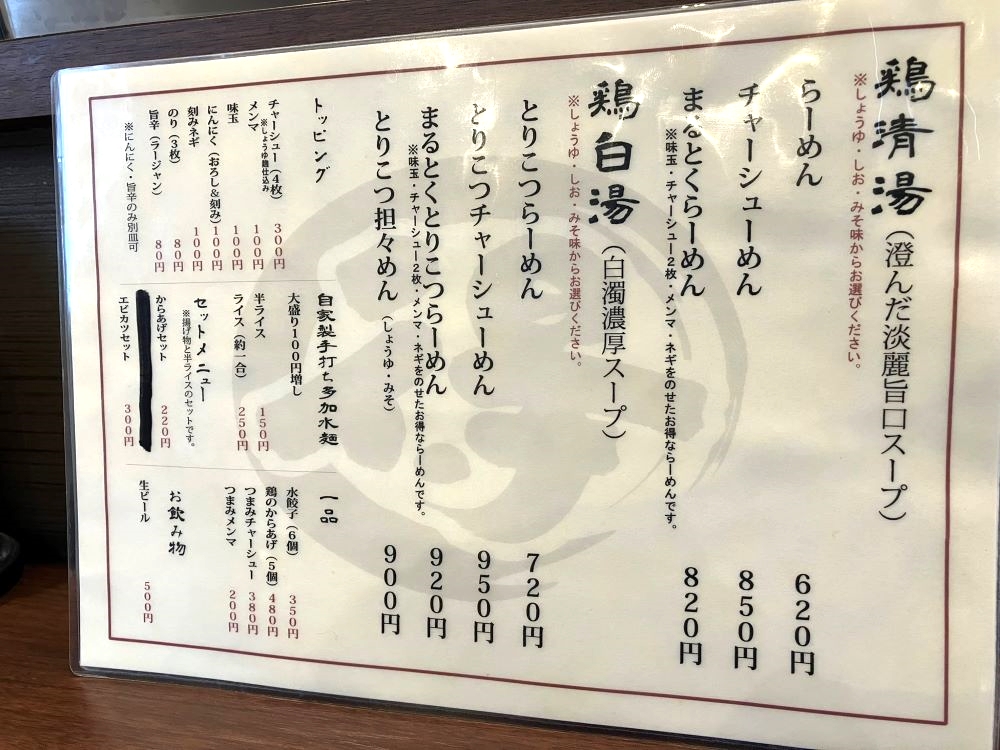 鶏清湯（澄んだ淡麗旨口スープ）
※しょうゆ・しお・みそ味からお選びください。
らーめん 620円
チャーシューめん 850円
まるとくらーめん 820円
※味玉・チャーシュー2枚・メンマ・ネギをのせたお得ならーめんです。
鶏白湯（白濁濃厚スープ）
※しょうゆ・しお・みそ味からお選びください。
とりこつらーめん 720円
とりこつチャーシューめん 950円
まるとくとりこつらーめん 920円
※味玉・チャーシュー2枚・メンマ・ネギをのせたお得ならーめんです。
とりこつ担々めん（しょうゆ・みそ） 900円
トッピング
チャーシュー（4枚） 300円
※しょうゆ麹仕込み
メンマ 100円
味玉 100円
にんにく（おろし&刻み） 100円
刻みネギ 100円
のり（3枚） 80円
旨辛（ラージャン） 80円
※にんにく・旨辛のみ別皿可
自家製手打ち多加水麺
大盛り100円増し
半ライス 150円
ライス（約一合） 250円
セットメニュー
※揚げ物と半ライスのセットです。
からあげセット 220円
エビカツセット 300円
一品
水餃子（6個） 350円
鶏のからあげ（5個） 480円
つまみチャーシュー 380円
つまみメンマ 200円
お飲み物
生ビール 500円